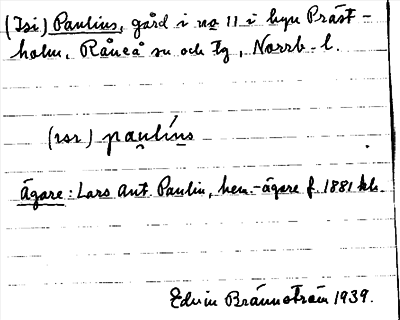 (Isi) Paulins, gård i no 11 i byn Präst-
holm, Råneå sn och tg, Norrb. l.
(rsr) pau̯líns
Ägare: Lars Ant. Paulin, hem.-ägare f. 1881 hb.
Edvin Brännström 1939.